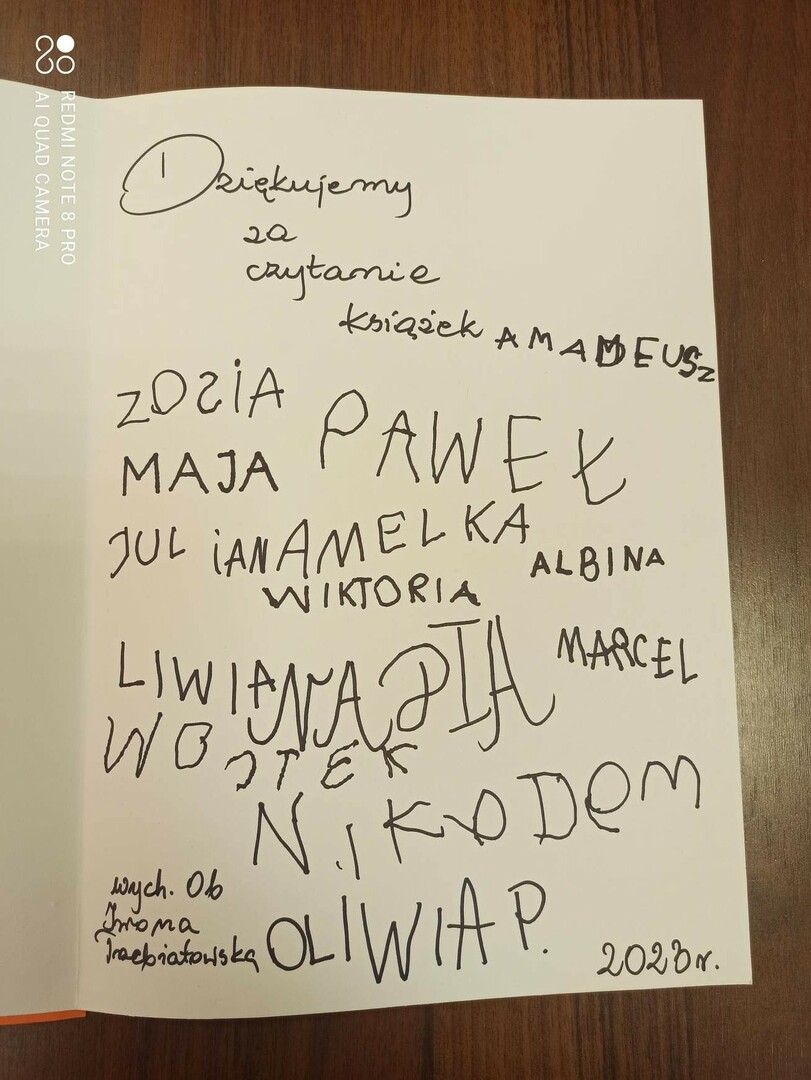 REDMI NOTE 8 PRO
AI QUAD CAMERA
Dziękujemy
za
czytanie
książek
AMADEUSZ
ZOSIA
PAWEŁ
MAJA
JULIAN
AMELKA
ALBINA
WIKTORIA
MARCEL
LIWIA
NADIA
WOJTEK
NIKODEM
wych. Ob
Iwona
Trzebiatowska
OLIWIA P.
2023 r.